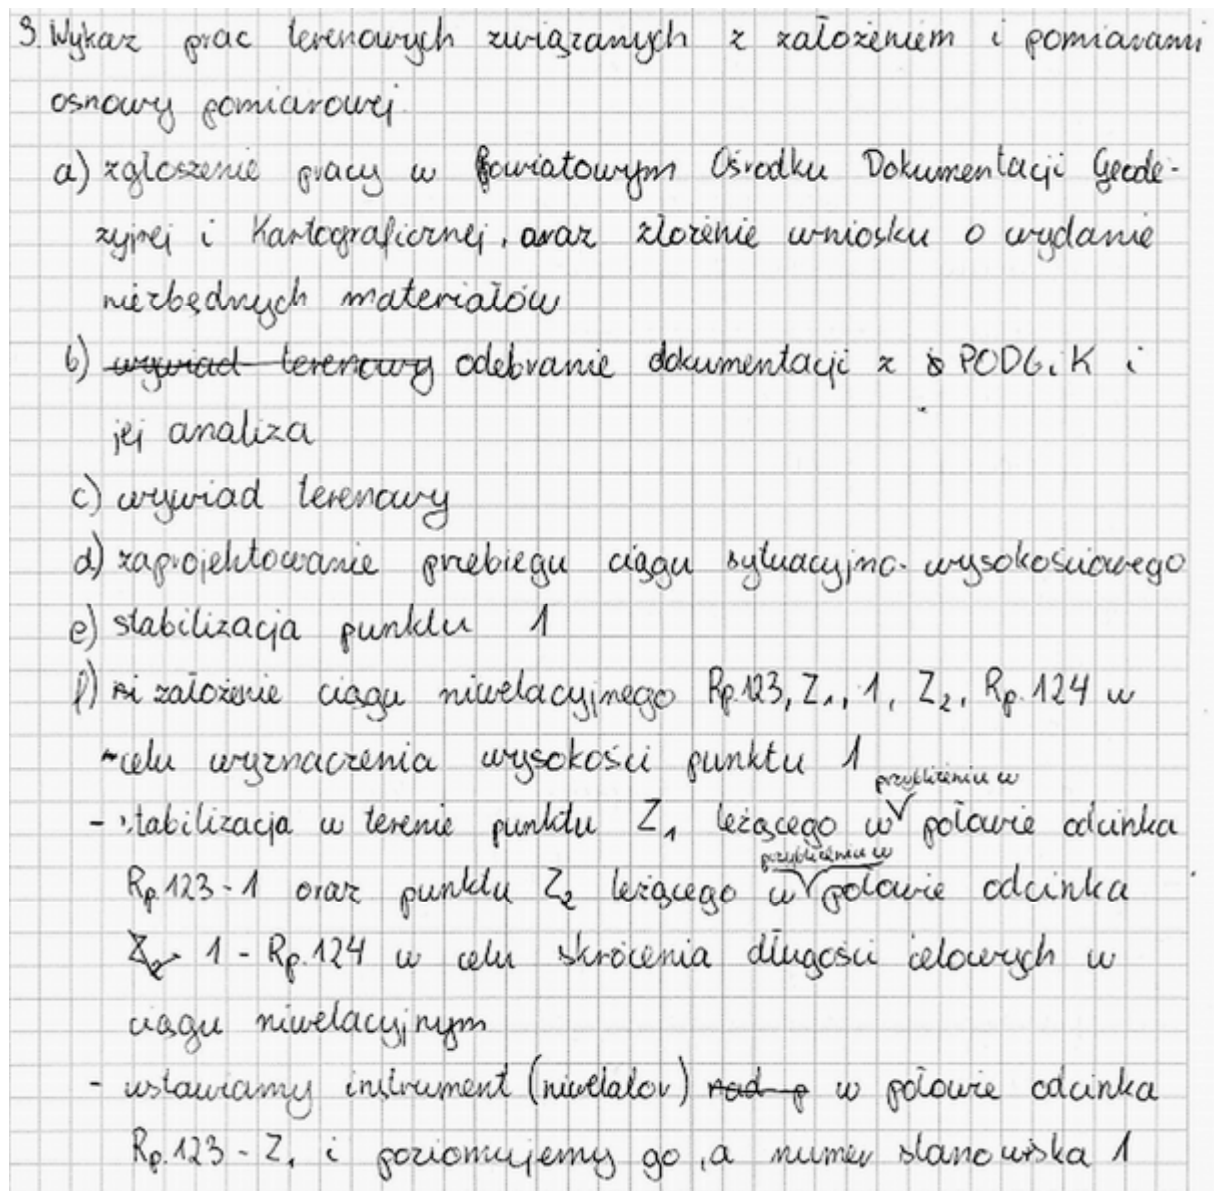 3. Wykaz prac terenowych związanych z założeniem i pomiarami
osnowy pomiarowej.
a) zgłoszenie pracy w Powiatowym Ośrodku Dokumentacji Geode-
zyjnej i Kartograficznej, oraz złożenie wniosku o wydanie
niezbędnych materiałów
b) wywiad terenowy odebranie dokumentacji z PODG i K i
jej analiza
c) wywiad terenowy
d) zaprojektowanie przebiegu ciągu sytuacyjno-wysokościowego
e) stabilizacja punktu 1
f) założenie ciągu niwelacyjnego Rp.123, Z1, 1, Z2, Rp.124 w
celu wyznaczenia wysokości punktu 1
przybliżeniu w
- stabilizacja w terenie punktu Z1 leżącego w połowie odcinka
przybliżeniu w
Rp.123-1 oraz punktu Z2 leżącego w połowie odcinka
Z2 1 - Rp.124 w celu skrócenia długości celowych w
ciągu niwelacyjnym
- ustawiamy instrument (niwelator) nad p w połowie odcinka
Rp.123 - Z1 i poziomujemy go, a numer stanowiska 1